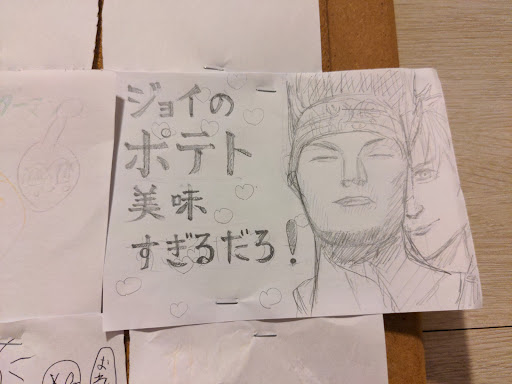 ジョイの
ポテト
美味
すぎるだろ!